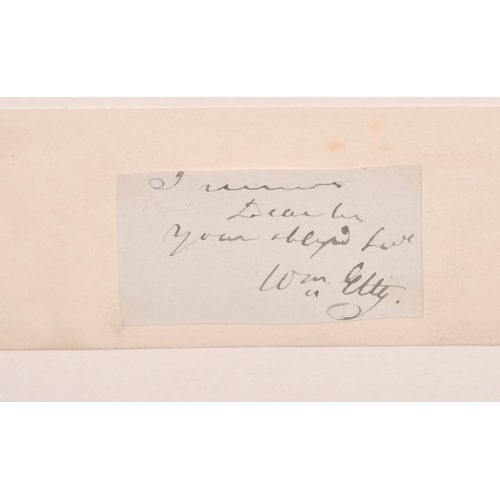 I remain
Dear Sir
Your oblig'd Serv
Wm Etty.